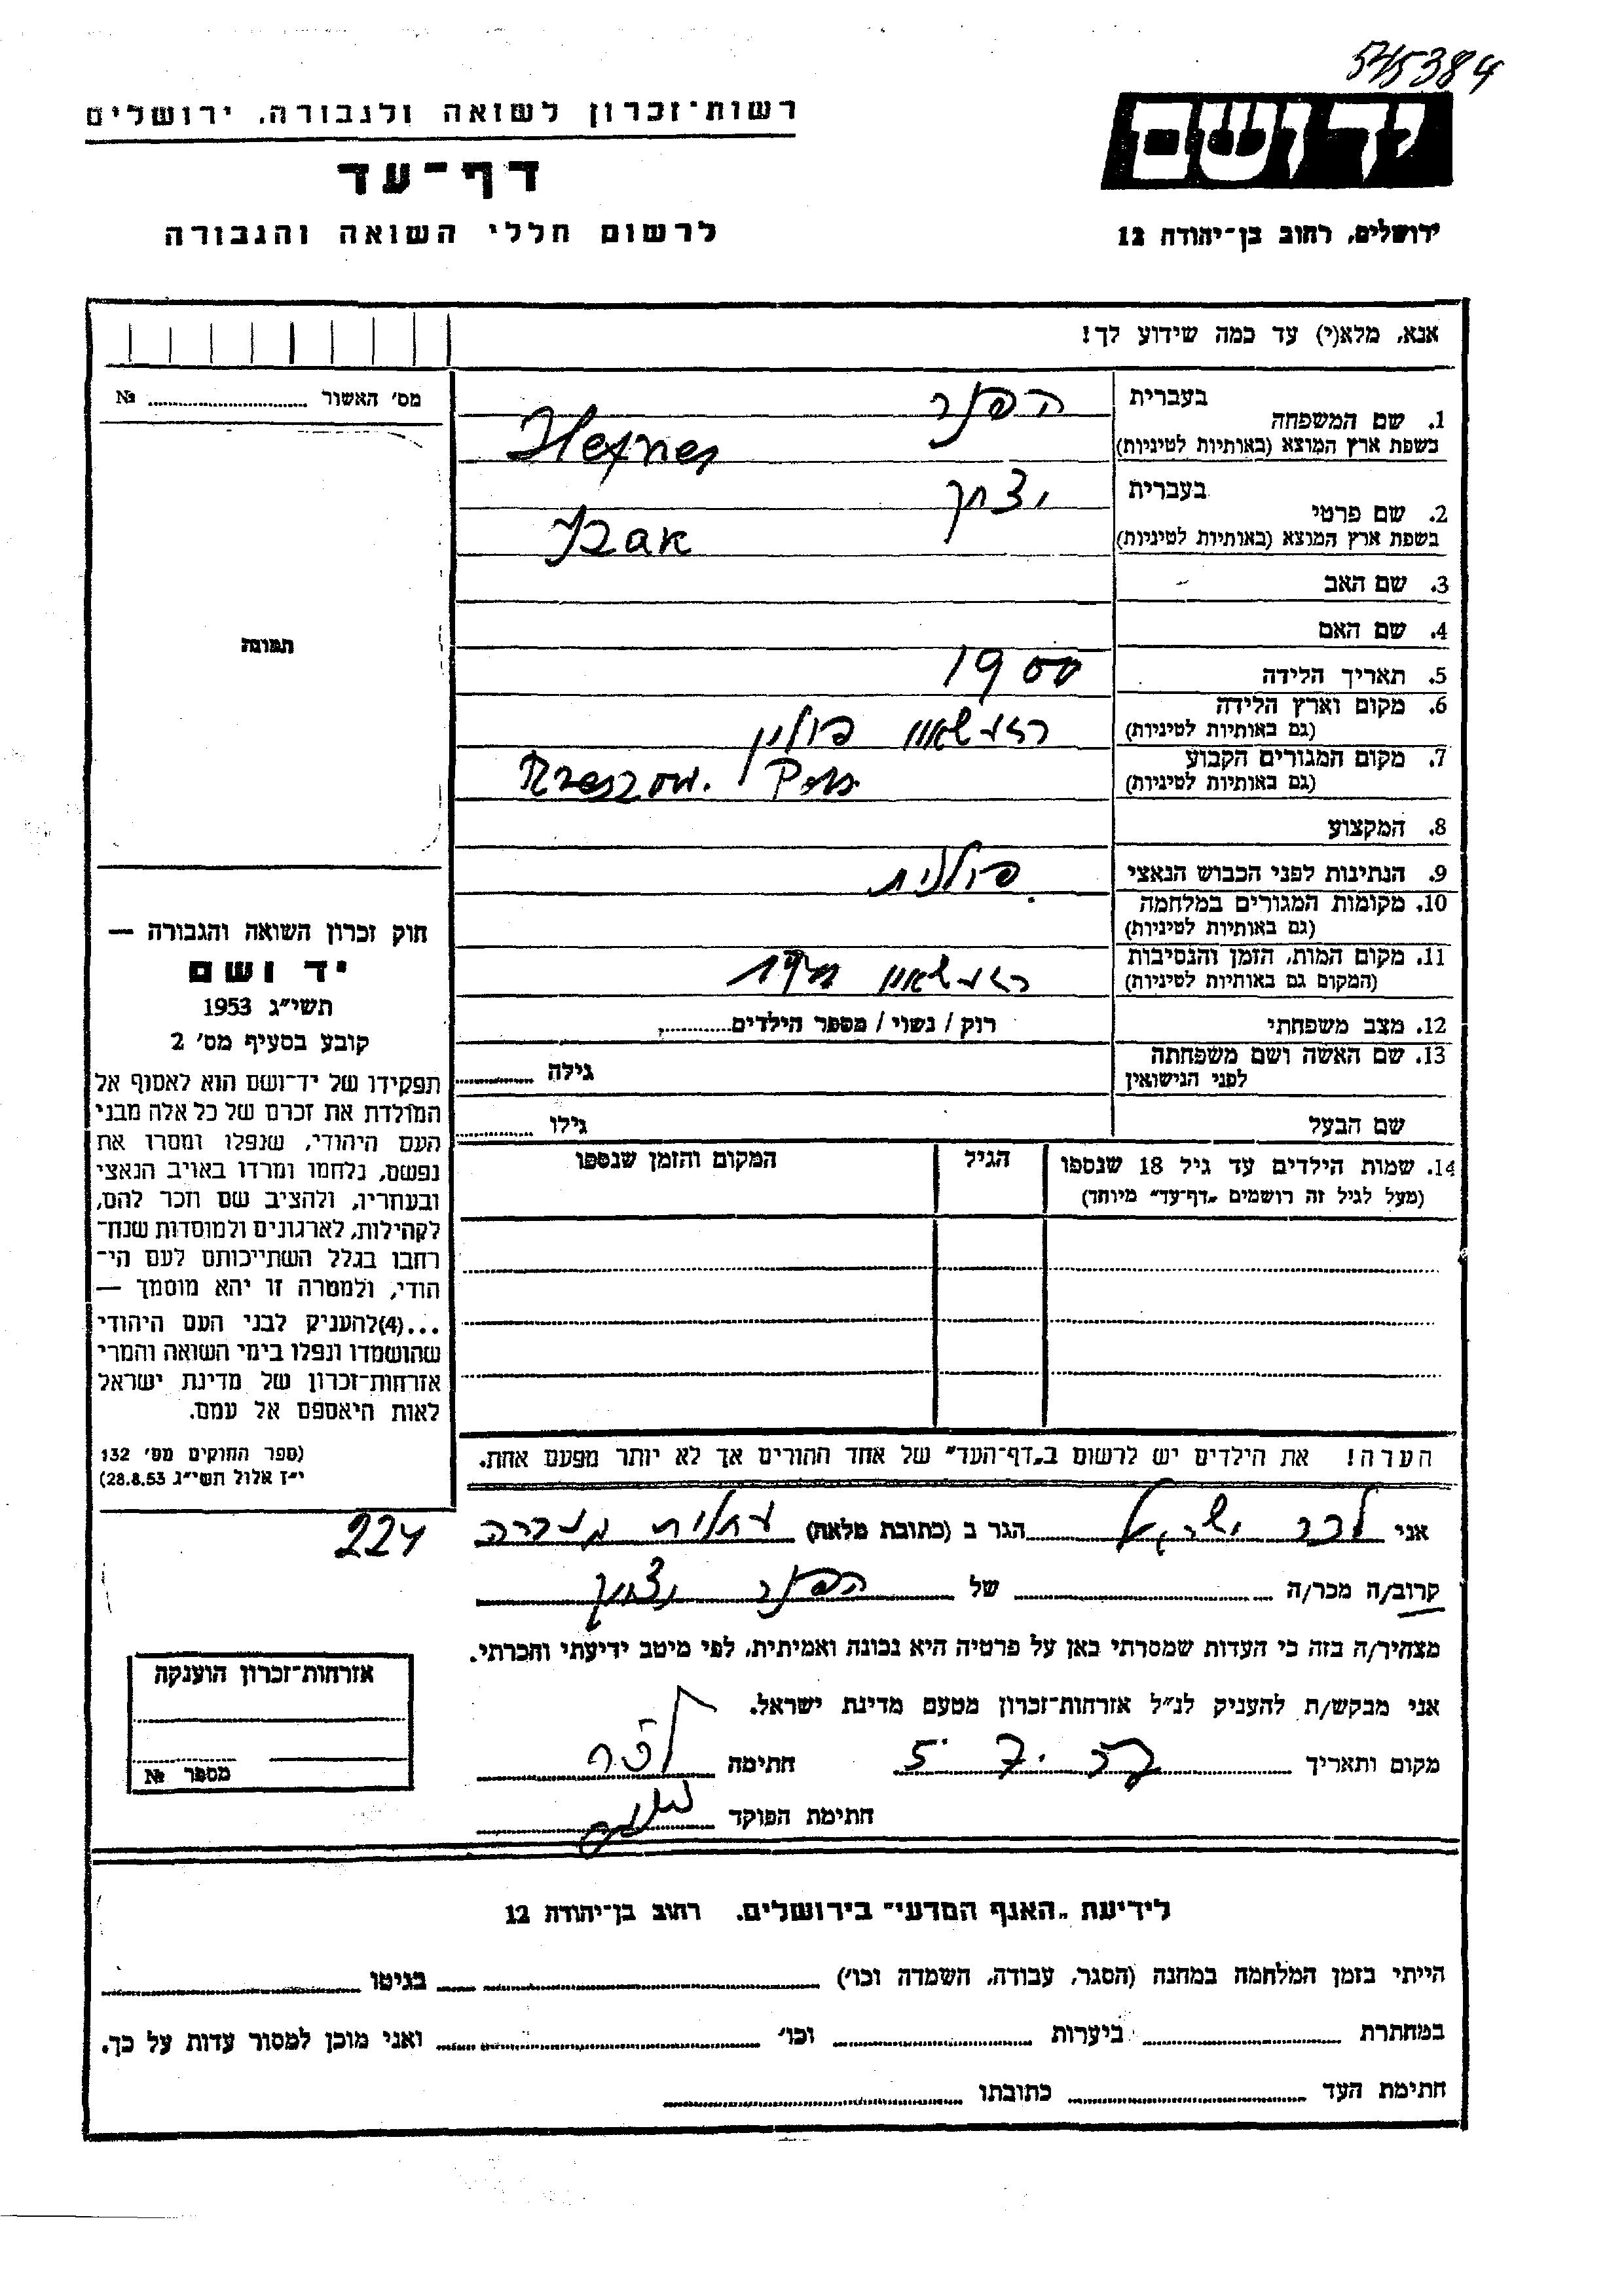 545384
רשות-זכרון לשואה ולגבורה, ירושלים
ידושם
דף-עד
ירושלים, רחוב בן-יהודה 12
לרשום חללי השואה והגבורה
אנא, מלא(י) עד כמה שידוע לך!
מס' האשור № 
1. שם המשפחה בעברית הפנר
בשפת ארץ המוצא (באותיות לטיניות) Hefner
2. שם פרטי בעברית יצחק
בשפת ארץ המוצא (באותיות לטיניות) Izak
3. שם האב
תמונה
4. שם האם
5. תאריך הלידה 1900
6. מקום וארץ הלידה
(גם באותיות לטיניות) רז'שאוו פולין
7. מקום המגורים הקבוע
(גם באותיות לטיניות) Rzeszow.
8. המקצוע
9. הנתינות לפני הכבוש הנאצי פולנית
10. מקומות המגורים במלחמה
(גם באותיות לטיניות)
11. מקום המות, הזמן והנסיבות
(המקום גם באותיות לטיניות) רז'שאוו
12. מצב משפחתי רוק / נשוי / מספר הילדים
13. שם האשה ושם משפחתה
לפני הנישואין גילה
שם הבעל גילו
חוק זכרון השואה והגבורה —
יד ושם
תשי"ג 1953
קובע בסעיף מס' 2
תפקידו של יד-ושם הוא לאסוף אל
המולדת את זכרם של כל אלה מבני
העם היהודי, שנפלו ומסרו את
נפשם, נלחמו ומרדו באויב הנאצי
ובעוזריו, ולהציב שם וזכר להם,
לקהילות, לארגונים ולמוסדות שנח-
רחבו בגלל השתייכותם לעם הי-
הודי, ולמטרה זו יהא מוסמך —
...(4)להעניק לבני העם היהודי
שהושמדו ונפלו בימי השואה והמרי
אזרחות-זכרון של מדינת ישראל
לאות היאספם אל עמם.
(ספר החוקים מס' 132
י"ז אלול תשי"ג 28.8.53)
14. שמות הילדים עד גיל 18 שנספו הגיל המקום והזמן שנספו
(מעל לגיל זה רושמים "דף-עד" מיוחד)
הערה! את הילדים יש לרשום ב"דף-העד" של אחד ההורים אך לא יותר מפעם אחת.
אני ישראל הגר ב (כתובת מלאה) עתלית
224
קרוב/ה מכר/ה של הפנר יצחק
מצהיר/ה בזה כי העדות שמסרתי כאן על פרטיה היא נכונה ואמיתית, לפי מיטב ידיעתי והכרתי.
אני מבקש/ת להעניק לנ"ל אזרחות-זכרון מטעם מדינת ישראל.
מקום ותאריך חתימה
חתימת הפוקד
אזרחות-זכרון הוענקה
מספר №
לידיעת "האגף המדעי" בירושלים. רחוב בן-יהודה 12
הייתי בזמן המלחמה במחנה (הסגר, עבודה, השמדה וכו') בגיטו
במחתרת ביערות וכו' ואני מוכן למסור עדות על כך.
חתימת העד כתובתו